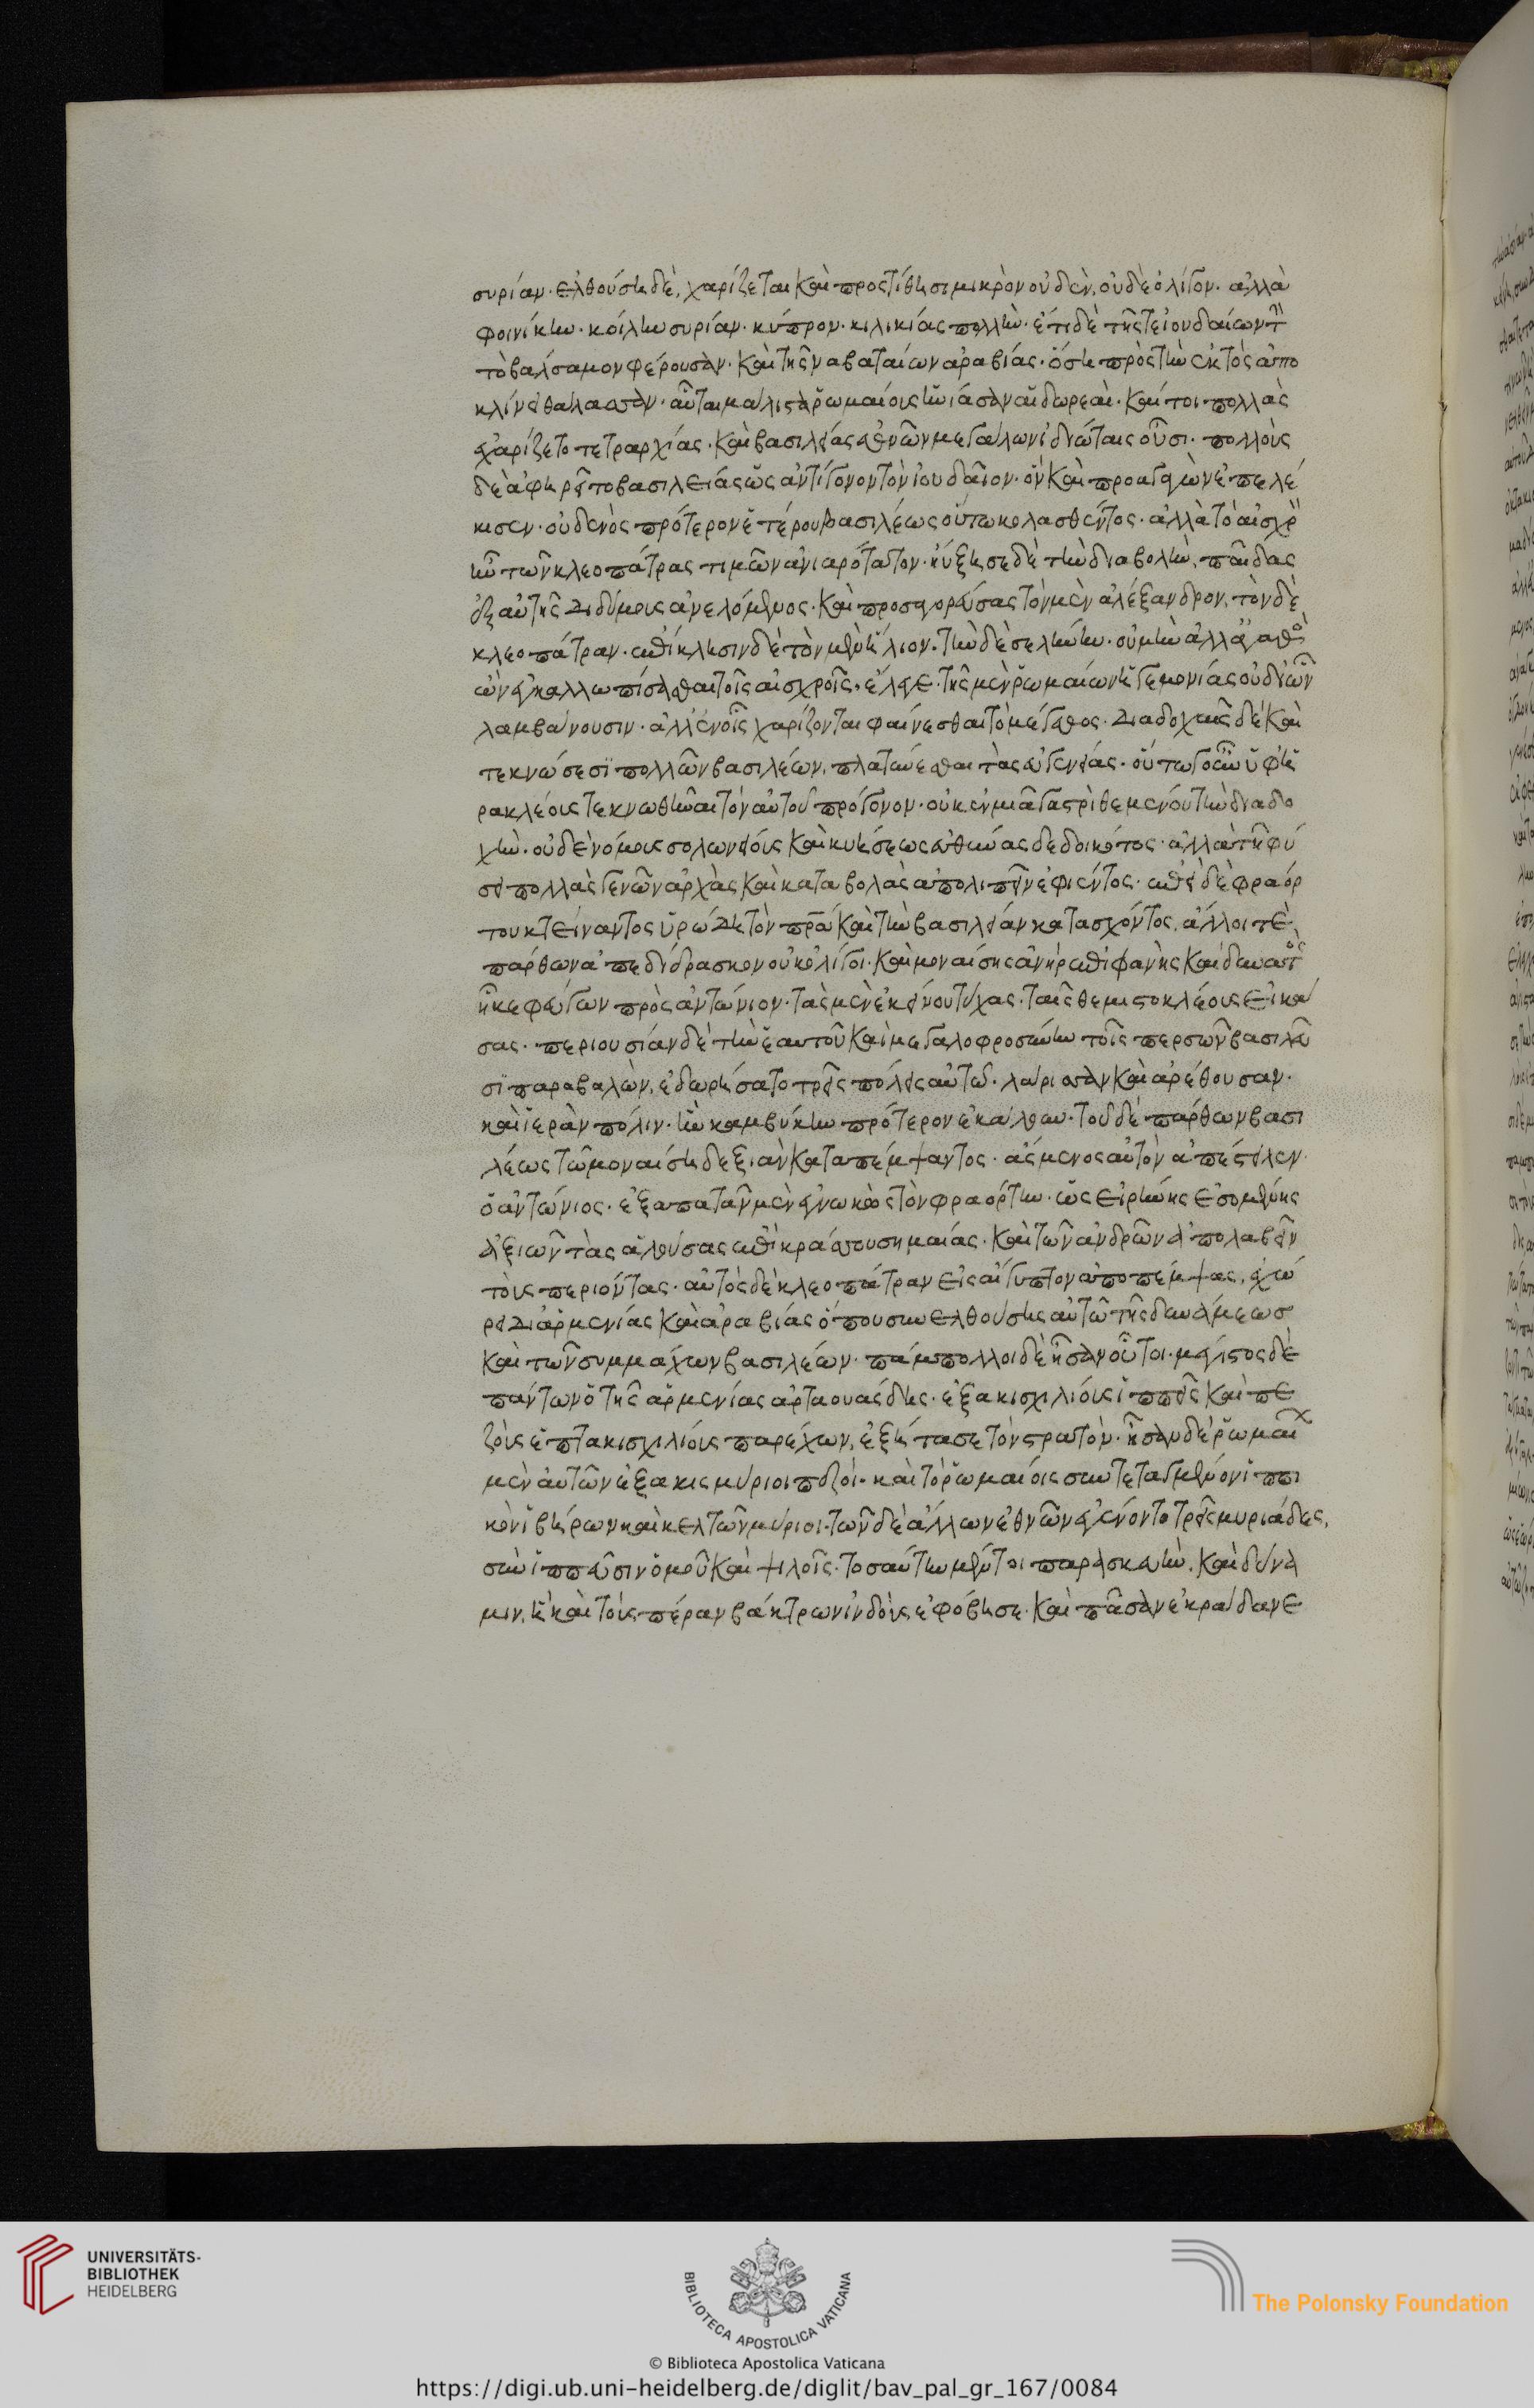 συρίαν· ἐλθούση δὲ, χαρίζεται καὶ προστίθησι μικρὸν οὐδὲν, οὐδὲ ὀλίγον· ἀλλὰ
φοινίκην· κοίλην συρίαν· κύπρον· κιλικίας πολλὴν· ἔτι δὲ τῆς τε ἰουδαίων τὴν
τὸ βάλσαμον φέρουσαν· καὶ τῆς ναβαταίων ἀραβίας· ὅση πρὸς τὴν ἐκτὸς ἀπο
κλίνει θάλασσαν· αὗται μάλιστα ῥωμαίους ἠνίασαν αἱ δωρεαὶ· καίτοι πολλὰς
ἐχαρίζετο τετραρχίας· καὶ βασιλείας ἐθνῶν μεγάλων ἰδιώταις οὖσι· πολλοὺς
δὲ ἀφῃρεῖτο βασιλείας ὡς ἀντίγονον τὸν ἰουδαῖον· ὃν καὶ προαγαγὼν ἐπελέ
κισεν· οὐδενὸς πρότερον ἑτέρου βασιλέως οὕτω κολασθέντος· ἀλλὰ τὸ αἰσχρὸν
ἦν τῶν κλεοπάτρας τιμῶν ἀνιαρότατον· ηὔξησε δὲ τὴν διαβολὴν, παῖδας
ἐξ αὐτῆς διδύμους ἀνελόμενος· καὶ προσαγορεύσας τὸν μὲν ἀλέξανδρον, τὸν δὲ
κλεοπάτραν· ἐπίκλησιν δὲ τὸν μὲν ἥλιον· τὴν δὲ σελήνην· οὐ μὴν ἀλλὰ ἀγαθὸς
ὢν ἐγκαλλωπίσασθαι τοῖς αἰσχροῖς, ἔλεγε· τῆς μὲν ῥωμαίων ἡγεμονίας οὐ δι' ὧν
λαμβάνουσιν· ἀλλ' ἐν οἷς χαρίζονται φαίνεσθαι τὸ μέγεθος· διαδοχαῖς δὲ καὶ
τεκνώσεσι πολλῶν βασιλέων, πλατύνεσθαι τὰς εὐγενείας· οὕτω γοῦν ὑφ' ἡ
ρακλέους τεκνωθῆναι τὸν αὐτοῦ πρόγονον· οὐκ ἐν μιᾶ γαστρὶ θεμένου τὴν διαδο
χὴν· οὐδὲ νόμους σολωνείους καὶ κυήσεως εὐθύνας δεδοικότος· ἀλλὰ τῇ φύ
σει πολλὰς γενῶν ἀρχὰς καὶ καταβολὰς ἀπολιπεῖν ἐφιέντος· ἐπεὶ δὲ φραόρ
του κτείναντος ὑρώδη τὸν πρα καὶ τὴν βασιλείαν κατασχόντος, ἄλλοι τὲ
πάρθων ἀπεδίδρασκον οὐκ ὀλίγοι· καὶ μοναίσης ἀνὴρ ἐπιφανὴς καὶ δυνατὸς
ἧκε φεύγων πρὸς ἀντώνιον· τὰς μὲν ἐκείνου τύχας· ταῖς θεμιστοκλέους εἰκά
σας· περιουσίαν δὲ τὴν ἑαυτοῦ καὶ μεγαλοφροσύνην τοῖς περσῶν βασιλεῦ
σι παραβαλὼν, ἐδωρήσατο τρεῖς πόλεις αὐτῷ· λάρισσαν καὶ ἀρέθουσαν·
καὶ ἱερὰν πόλιν· ἣν καμβύκην πρότερον ἐκάλουν· τοῦ δὲ πάρθων βασι
λέως τῷ μοναίσῃ δεξιὰν καταπέμψαντος· ἄσμενος αὐτὸν ἀπέστειλεν·
ὁ ἀντώνιος· ἐξαπατᾶν μὲν ἐγνωκὼς τὸν φραόρτην· ὡς εἰρήνης ἐσομένης
ἀξιῶν τὰς ἁλούσας ἐπὶ κράσσου σημαίας· καὶ τῶν ἀνδρῶν ἀπολαβεῖν
τοὺς περιόντας· αὐτὸς δὲ κλεοπάτραν εἰς αἴγυπτον ἀποπέμψας, ἐχώ
ρει δι' ἀρμενίας καὶ ἀραβίας ὅπου συνελθούσης αὐτῷ τῆς δυνάμεως
καὶ τῶν συμμάχων βασιλέων· πάμπολλοι δὲ ἦσαν οὗτοι· μέγιστος δὲ
πάντων ὁ τῆς ἀρμενίας ἀρταουάσδης· ἑξακισχιλίους ἱππεῖς καὶ πε
ζοὺς ἑπτακισχιλίους παρέχων, ἐξήτασε τὸν στρατὸν· ἦσαν δὲ ῥωμαίων
μὲν αὐτῶν ἑξακισμύριοι πεζοὶ· καὶ τὸ ῥωμαίοις συντεταγμένον ἱππι
κὸν ἰβήρων καὶ κελτῶν μύριοι· τῶν δὲ ἄλλων ἐθνῶν ἐγένοντο τρεῖς μυριάδες,
σὺν ἱππεῦσιν ὁμοῦ καὶ ψιλοῖς· τοσαύτην μέντοι παρασκευὴν, καὶ δύνα
μιν, ἣ καὶ τοὺς πέραν βάκτρων ἰνδοὺς ἐφόβησε· καὶ πᾶσαν ἐκράδανε
UNIVERSITÄTS-
BIBLIOTHEK
HEIDELBERG
BIBLIOTECA APOSTOLICA VATICANA
The Polonsky Foundation
© Biblioteca Apostolica Vaticana
https://digi.ub.uni-heidelberg.de/diglit/bav_pal_gr_167/0084